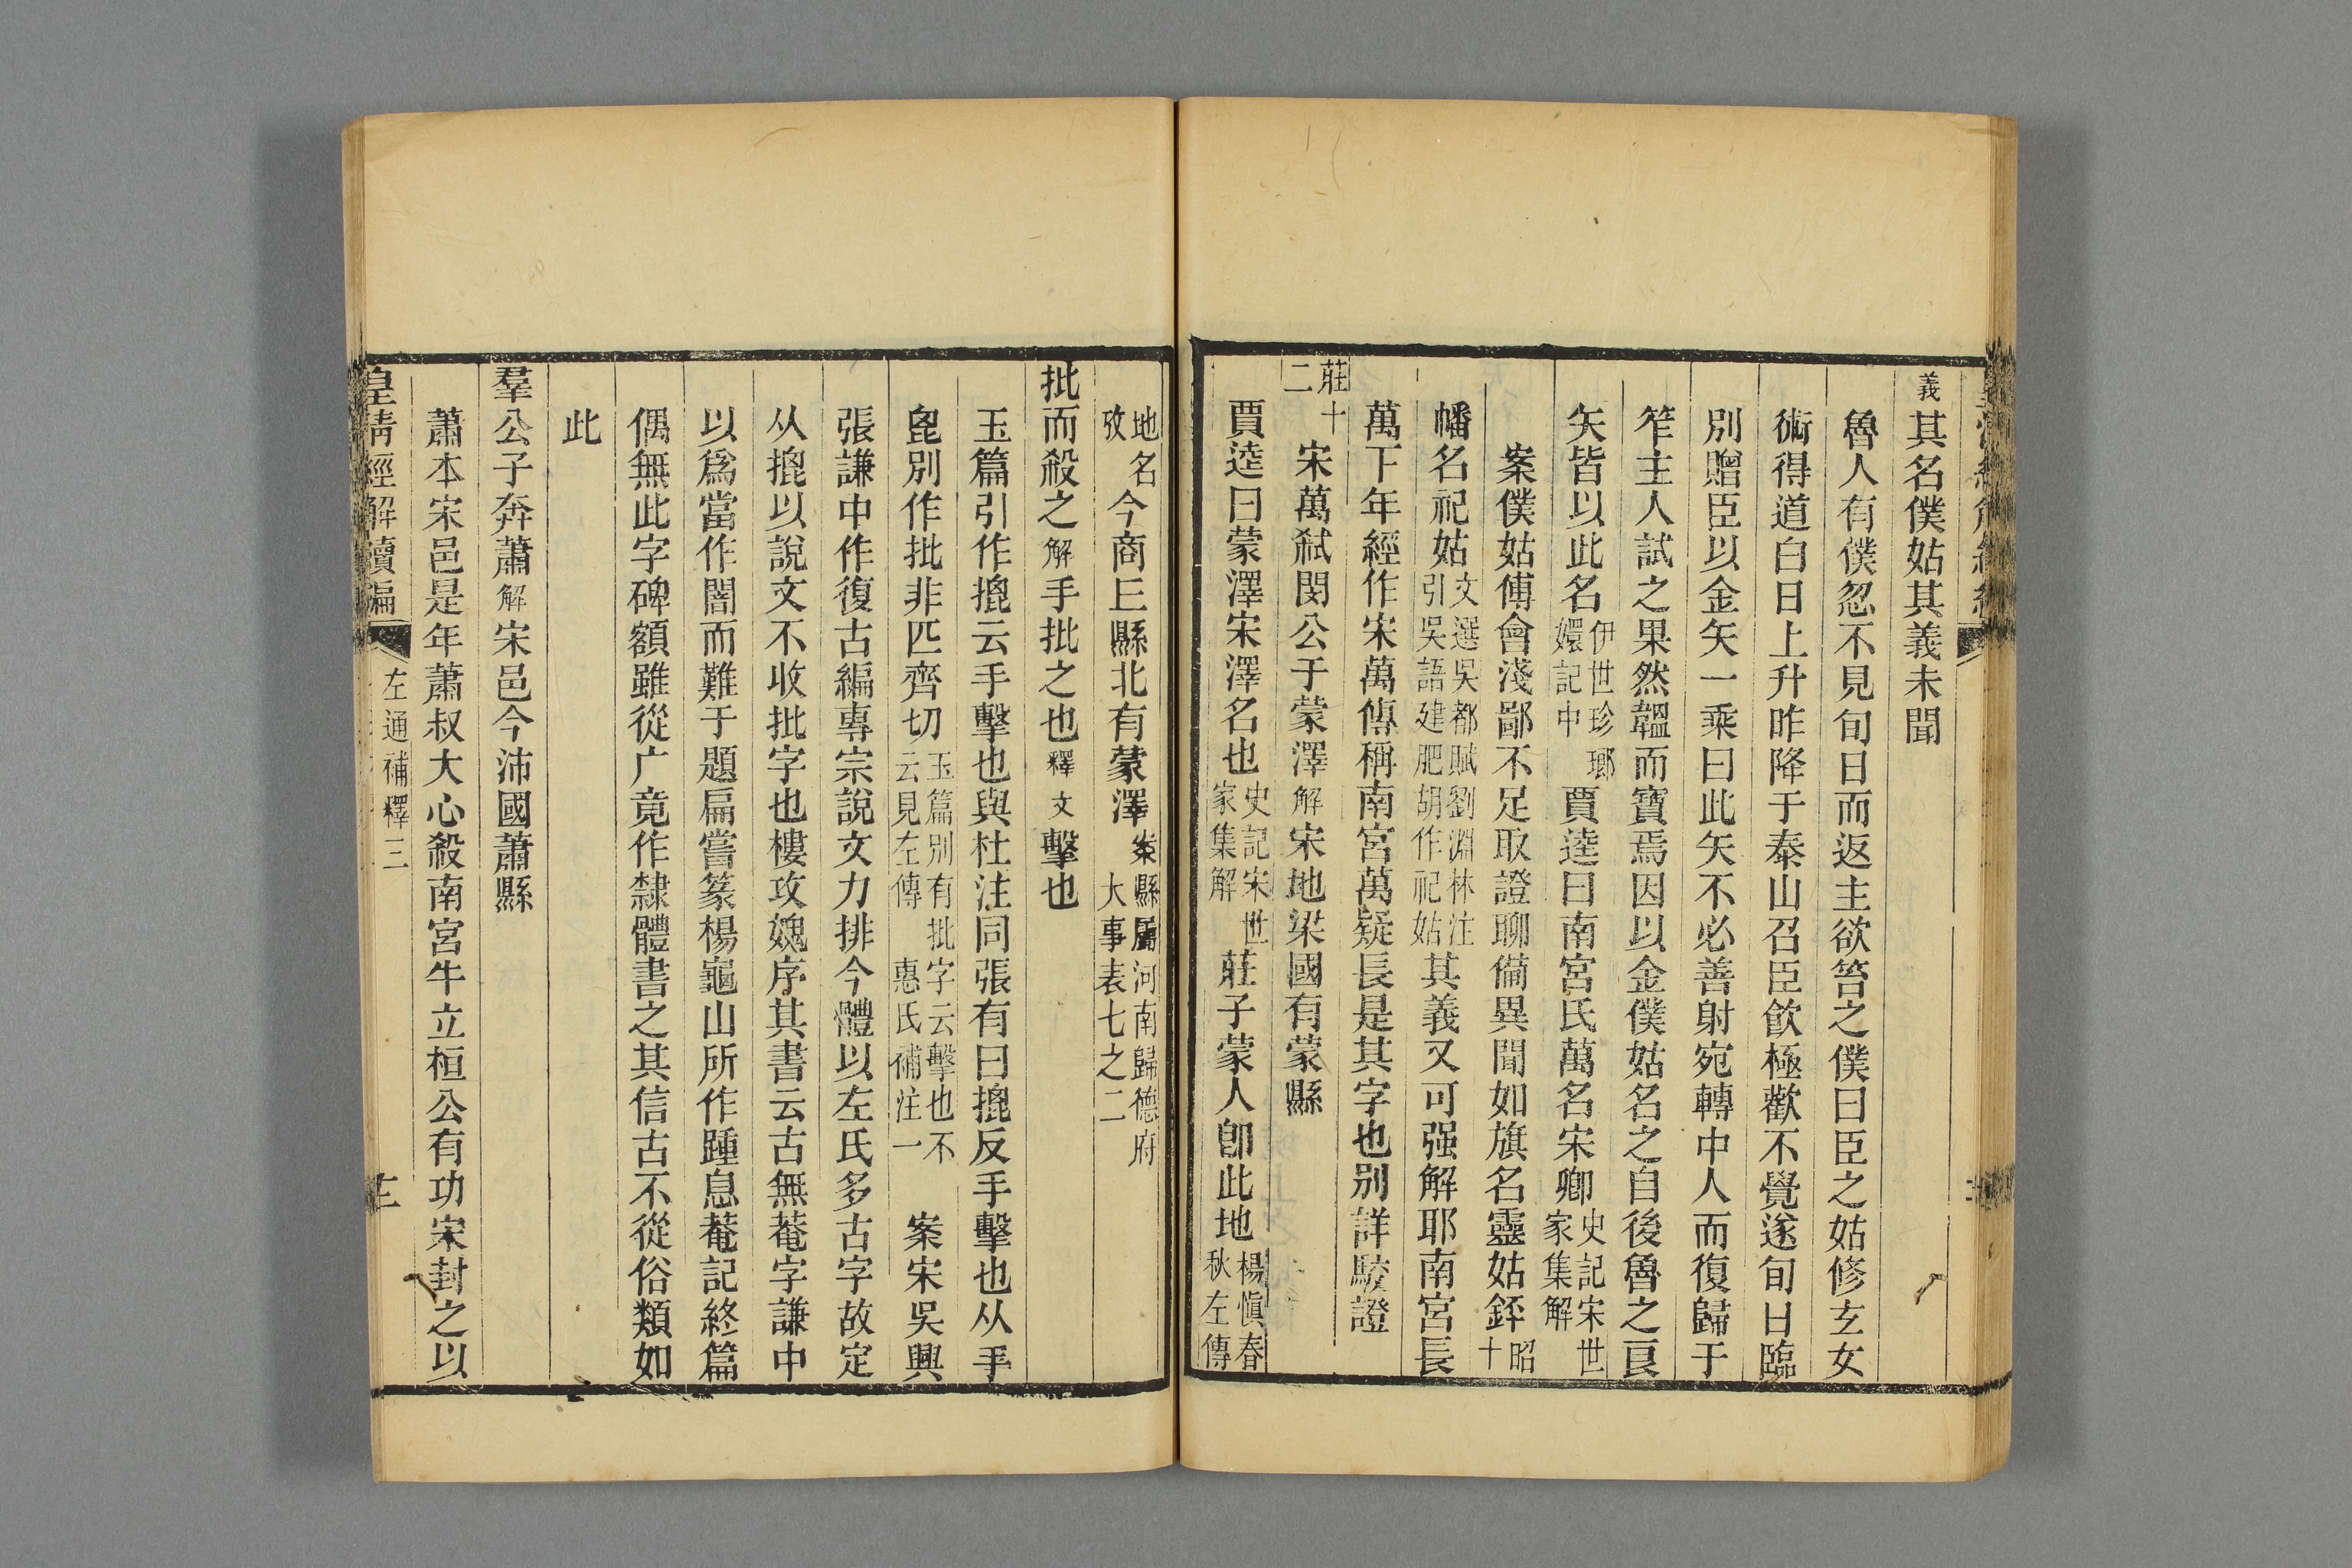 義其名僕姑其義未聞
魯人有僕忽不見旬日而返主欲笞之僕曰臣之姑修玄女
術得道白日上升昨降于泰山召臣飮極歡不覺遂旬日臨
別贈臣以金矢一乘曰此矢不必善射宛轉中人而復歸于
笮主人試之果然韞而寶焉因以金僕姑名之自後魯之良
矢皆以此名伊世珍瑯嬛記中賈逵曰南宮氏萬名宋卿史記宋世家集解
案僕姑傅會淺鄙不足取證聊僃異聞如旗名靈姑銔昭十
幡名祀姑文選吳都賦劉淵林注引吳語建肥胡作祀姑其義又可强解耶南宮長
萬下年經作宋萬傳稱南宮萬疑長是其字也別詳駮證
莊十二宋萬弒閔公于蒙澤解宋地梁國有蒙縣
賈逵曰蒙澤宋澤名也史記宋世家集解莊子蒙人卽此地楊愼春秋左傳
地名攷今商丘縣北有蒙澤案縣屬河南歸德府大事表七之二
批而殺之解手批之也釋文擊也
玉篇引作㨽云手擊也與杜注同張有曰㨽反手擊也从手
毘別作批非匹齊切玉篇別有批字云擊也不云見左傳惠氏補注一案宋吳興
張謙中作復古編專宗說文力排今體以左氏多古字故定
从㨽以說文不收批字也樓攻媿序其書云古無菴字謙中
以爲當作闇而難于題扁嘗篆楊龜山所作踵息菴記終篇
偶無此字碑額雖從广竟作隸體書之其信古不從俗類如
此
羣公子奔蕭解宋邑今沛國蕭縣
蕭本宋邑是年蕭叔大心殺南宮牛立桓公有功宋封之以
皇淸經解續編
左通補釋三